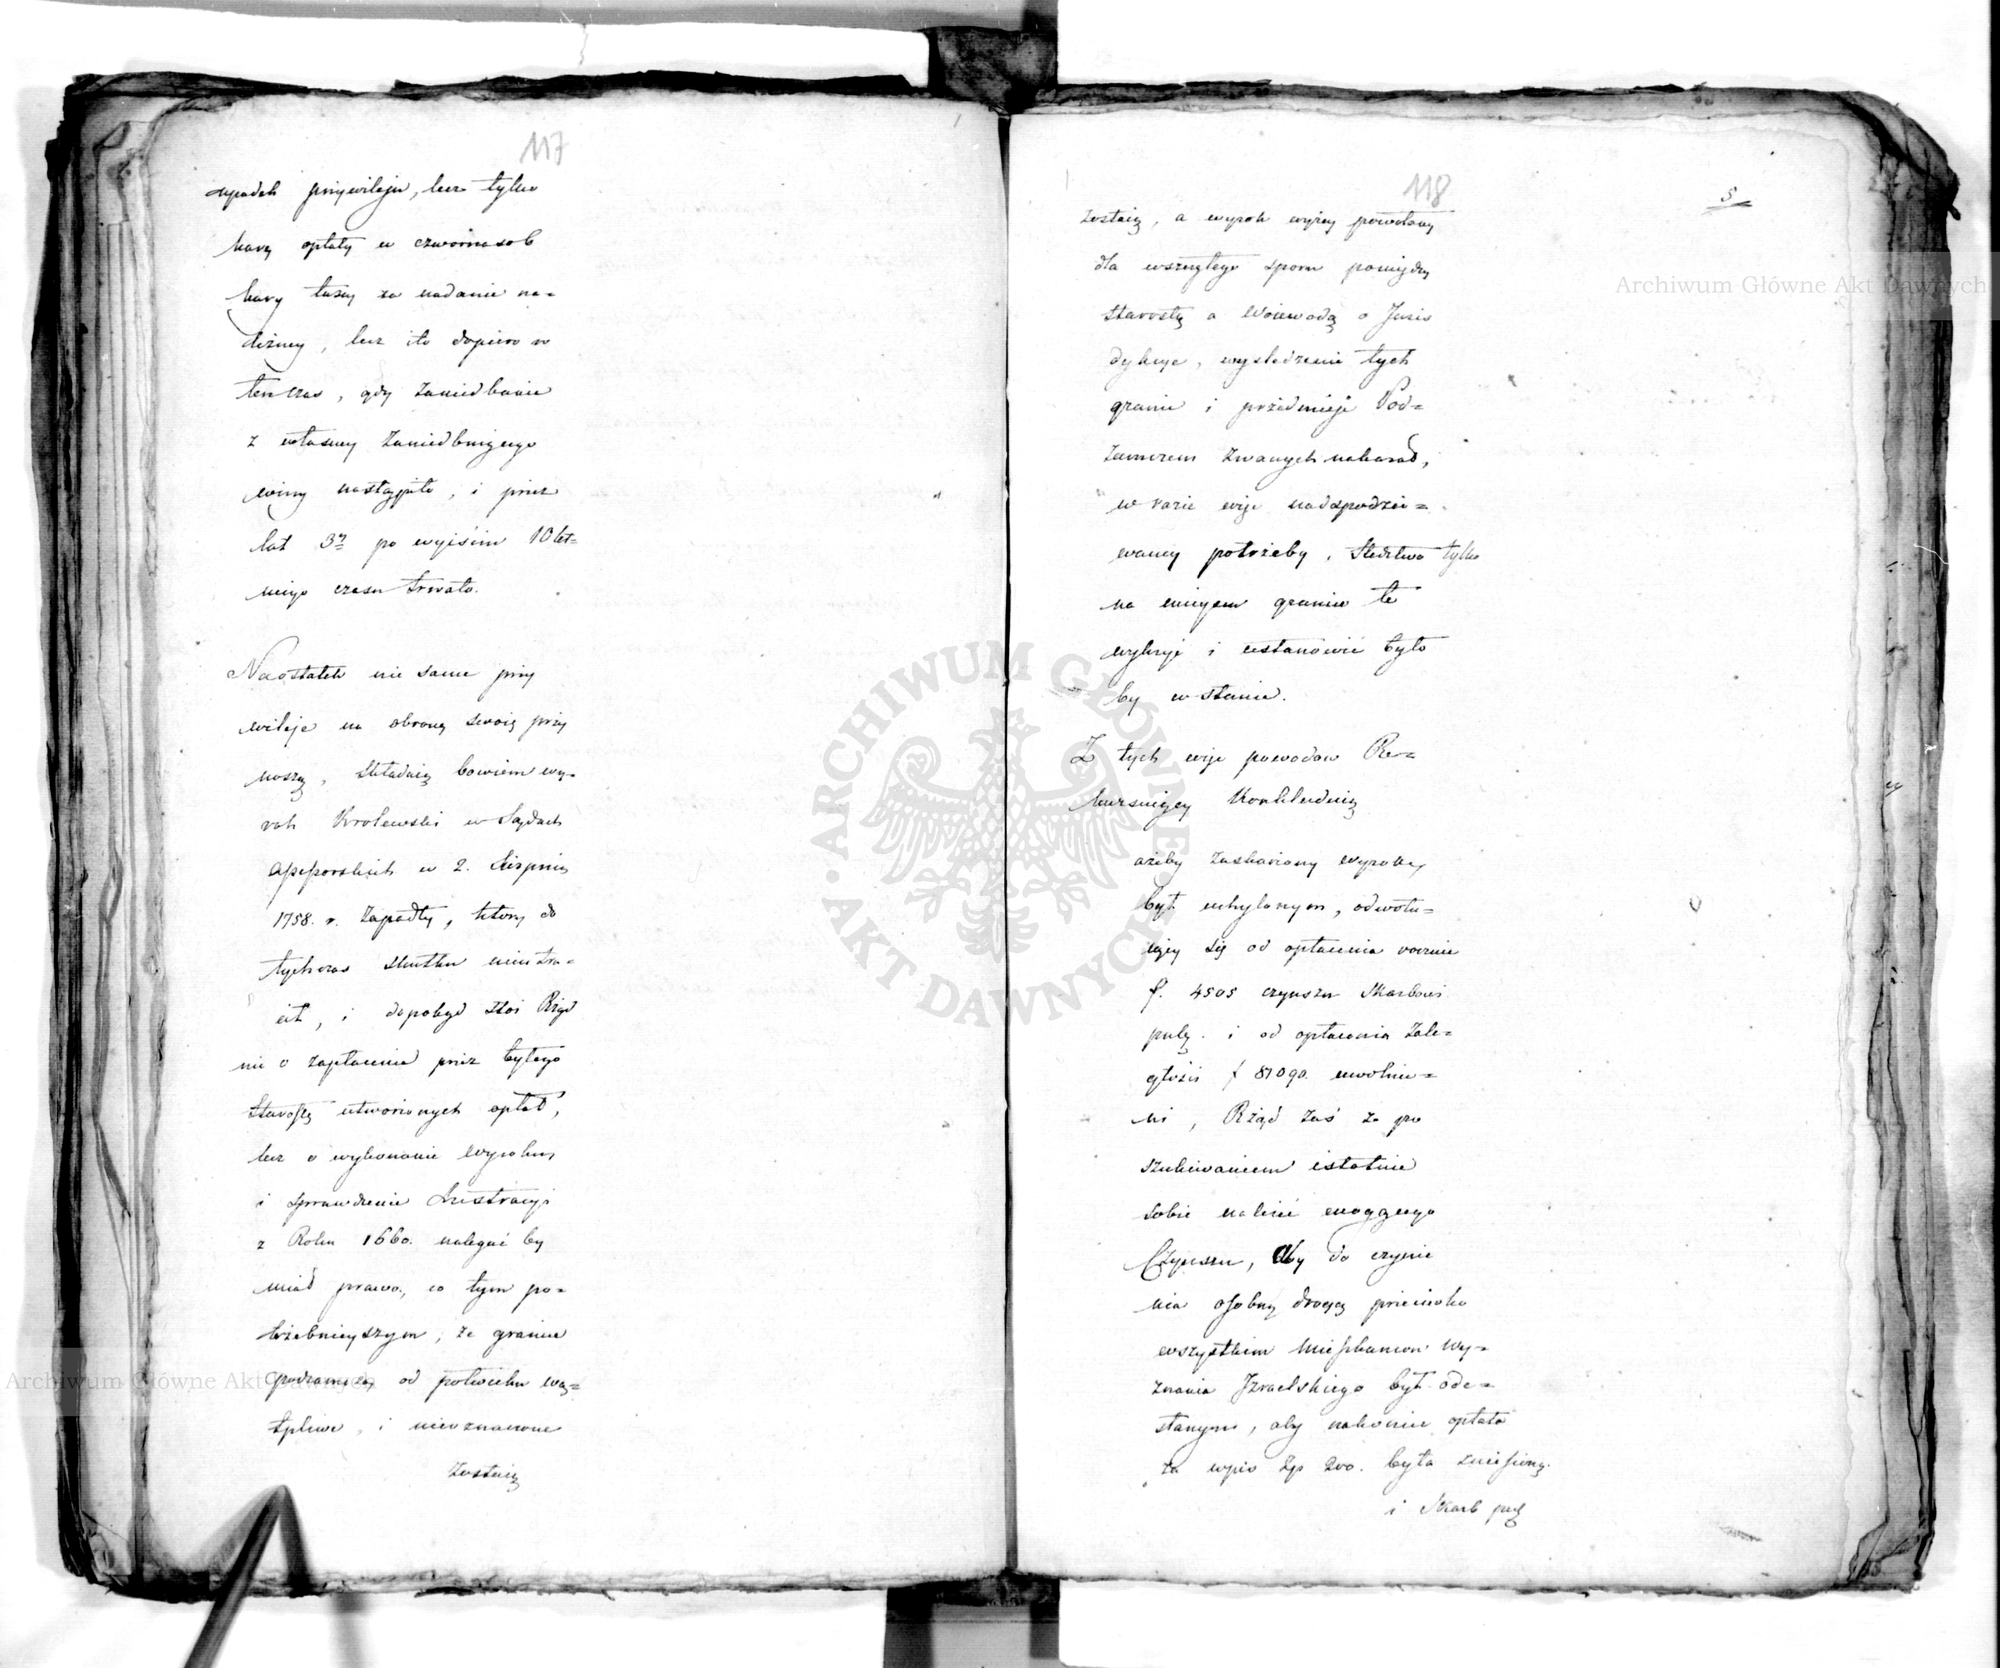 117
upadek przywileju, lecz tylko
karę opłaty w czwórnasob
kary taxy za nadanie na-
leżney, lecz i to dopiero w
ten czas, gdy zaniedbanie
z własney zaniedbuiącego
winy nastąpiło, i przez
lat 3ry po wyiściu 10 let-
niego czasu trwało.
Naostatek nie same przy
wileje na obronę swoię przy
noszą, składaią bowiem wy-
rok Krolewski w Sądach
Assessorskich w 2. Sierpnia
1758. r. zapadły, ktory do
tychczas skutku nieutra-
cił, i dopokąd stoi Rząd
nie o zapłacenie przez byłego
Starostę utworzonych opłat,
lecz o wykonanie wyroku,
i sprawdzenie Lustracyi
z Roku 1660. nalegać by
miał prawo, co tym po-
trzebnieyszym, że granice
podzamcza od potwieku wą-
tpliwe, i nieoznaczone
zostaią
118
5
zostaią, a wyrok wyżey powołany
dla wszczętego sporu pomiędzy
Starostą a Woiewodą o Juris
dykcye, wysledzenie tych
granic i przedmieść Pod-
zamczem zwanych nakazał,
w razie więc nadspodzie-
waney potrzeby, Sledztwo tylko
na mieyscu granice te
wykryć i ustanowić było
by w stanie.
Z tych więc powodow Re-
kursuiący konkluduią
ażeby zaskarżony wyrok
był uchylonym, odwołu-
iący się od opłacenia rocznie
f. 4505 czynszu Skarbowi
pub. i od opłacenia zale-
głości f 81090. uwolnie-
ni, Rząd zaś za po
szukiwaniem istotnie
sobie należeć mogącego
Czynszu, aby do czynie
nia osobną drogą przeciwko
wszystkim Mieszkancom wy-
znania Izraelskiego był ode-
słanym, aby nakoniec opłata
za wpis Zp 200. była zniesioną.
i Skarb pub
Archiwum Główne Akt Dawnych
Archiwum Główne Akt Dawnych
ARCHIWUM GŁÓWNE AKT DAWNYCH